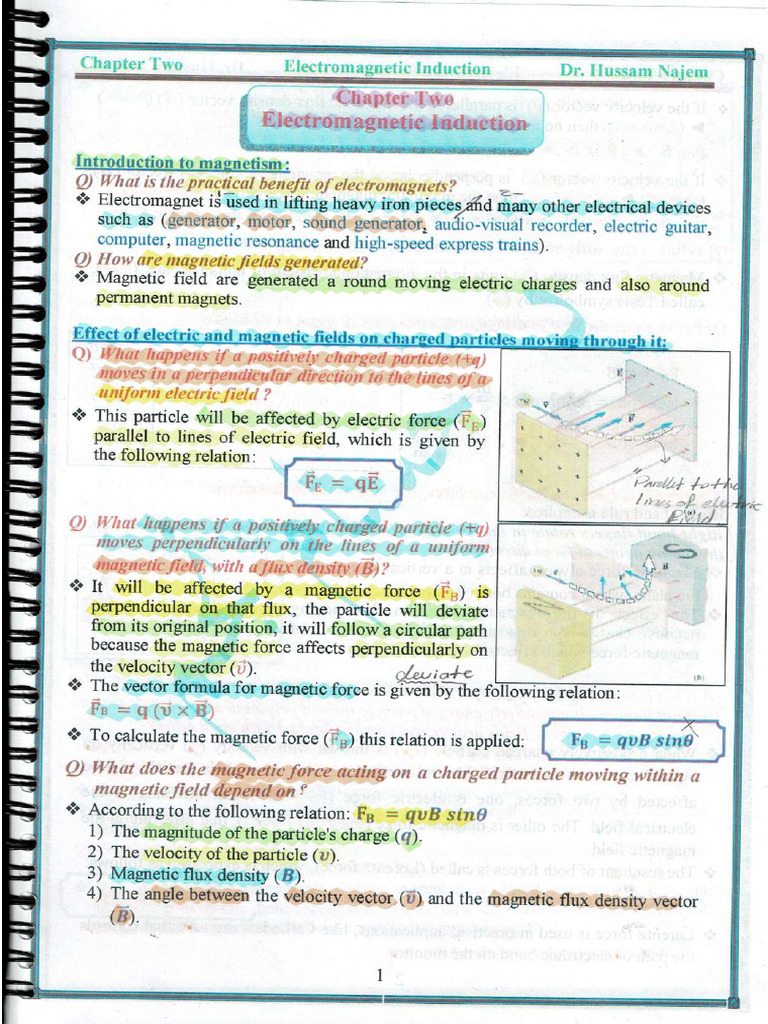 Chapter Two Electromagnetic Induction Dr. Hussam Najem
Chapter Two
Electromagnetic Induction
Introduction to magnetism:
Q) What is the practical benefit of electromagnets?
❖ Electromagnet is used in lifting heavy iron pieces and many other electrical devices
such as (generator, motor, sound generator, audio-visual recorder, electric guitar,
computer, magnetic resonance and high-speed express trains).
Q) How are magnetic fields generated?
❖ Magnetic field are generated a round moving electric charges and also around
permanent magnets.
Effect of electric and magnetic fields on charged particles moving through it:
Q) What happens if a positively charged particle (+q)
moves in a perpendicular direction to the lines of a
uniform electric field ?
❖ This particle will be affected by electric force (F⃗E)
parallel to lines of electric field, which is given by
the following relation:
F⃗E = qE⃗
Parallel to the
lines of electric
Field
Q) What happens if a positively charged particle (+q)
moves perpendicularly on the lines of a uniform
magnetic field, with a flux density (B)?
❖ It will be affected by a magnetic force (F⃗B) is
perpendicular on that flux, the particle will deviate
from its original position, it will follow a circular path
because the magnetic force affects perpendicularly on
the velocity vector (υ⃗).
deviate
S
(b)
❖ The vector formula for magnetic force is given by the following relation:
F⃗B = q (υ⃗ × B⃗)
❖ To calculate the magnetic force (F⃗B) this relation is applied: FB = qυB sinθ
Q) What does the magnetic force acting on a charged particle moving within a
magnetic field depend on ?
❖ According to the following relation: FB = qυB sinθ
1) The magnitude of the particle's charge (q).
2) The velocity of the particle (υ).
3) Magnetic flux density (B).
4) The angle between the velocity vector (υ⃗) and the magnetic flux density vector
(B⃗).
1